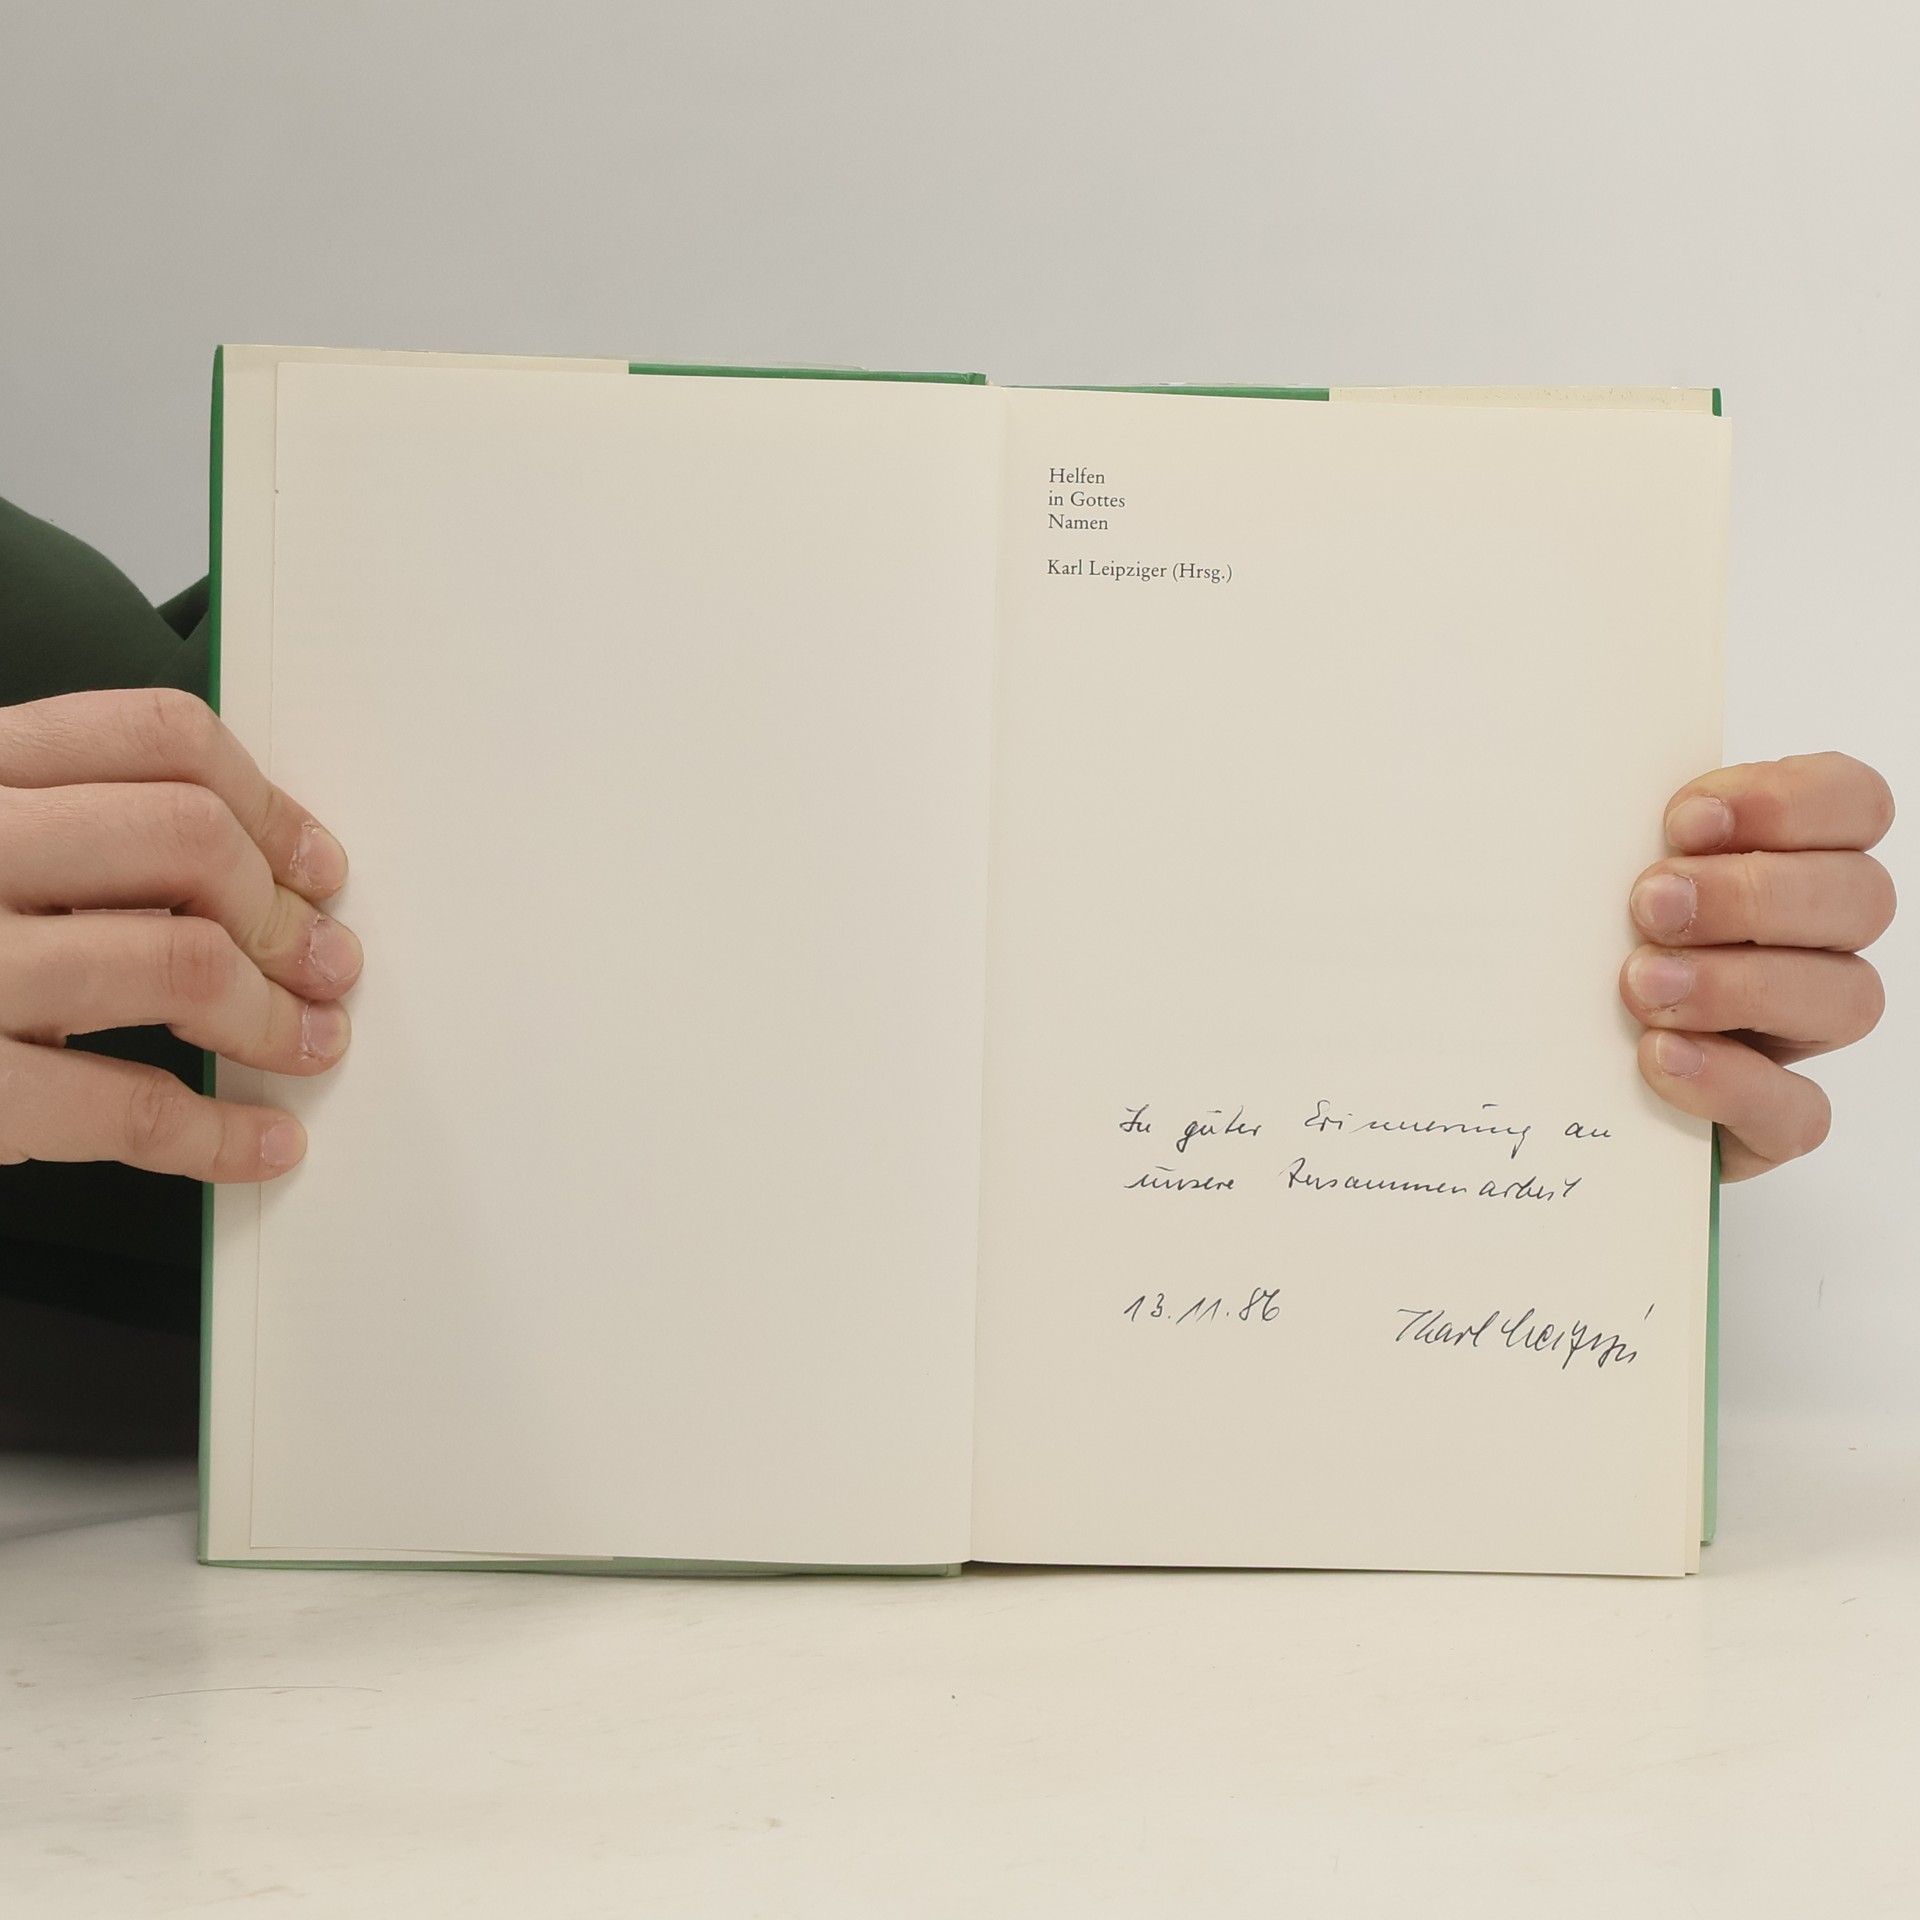 Helfen
in Gottes
Namen
Karl Leipziger (Hrsg.)
In guter Erinnerung an
unsere Zusammenarbeit
13.11.86 Karl Leipziger